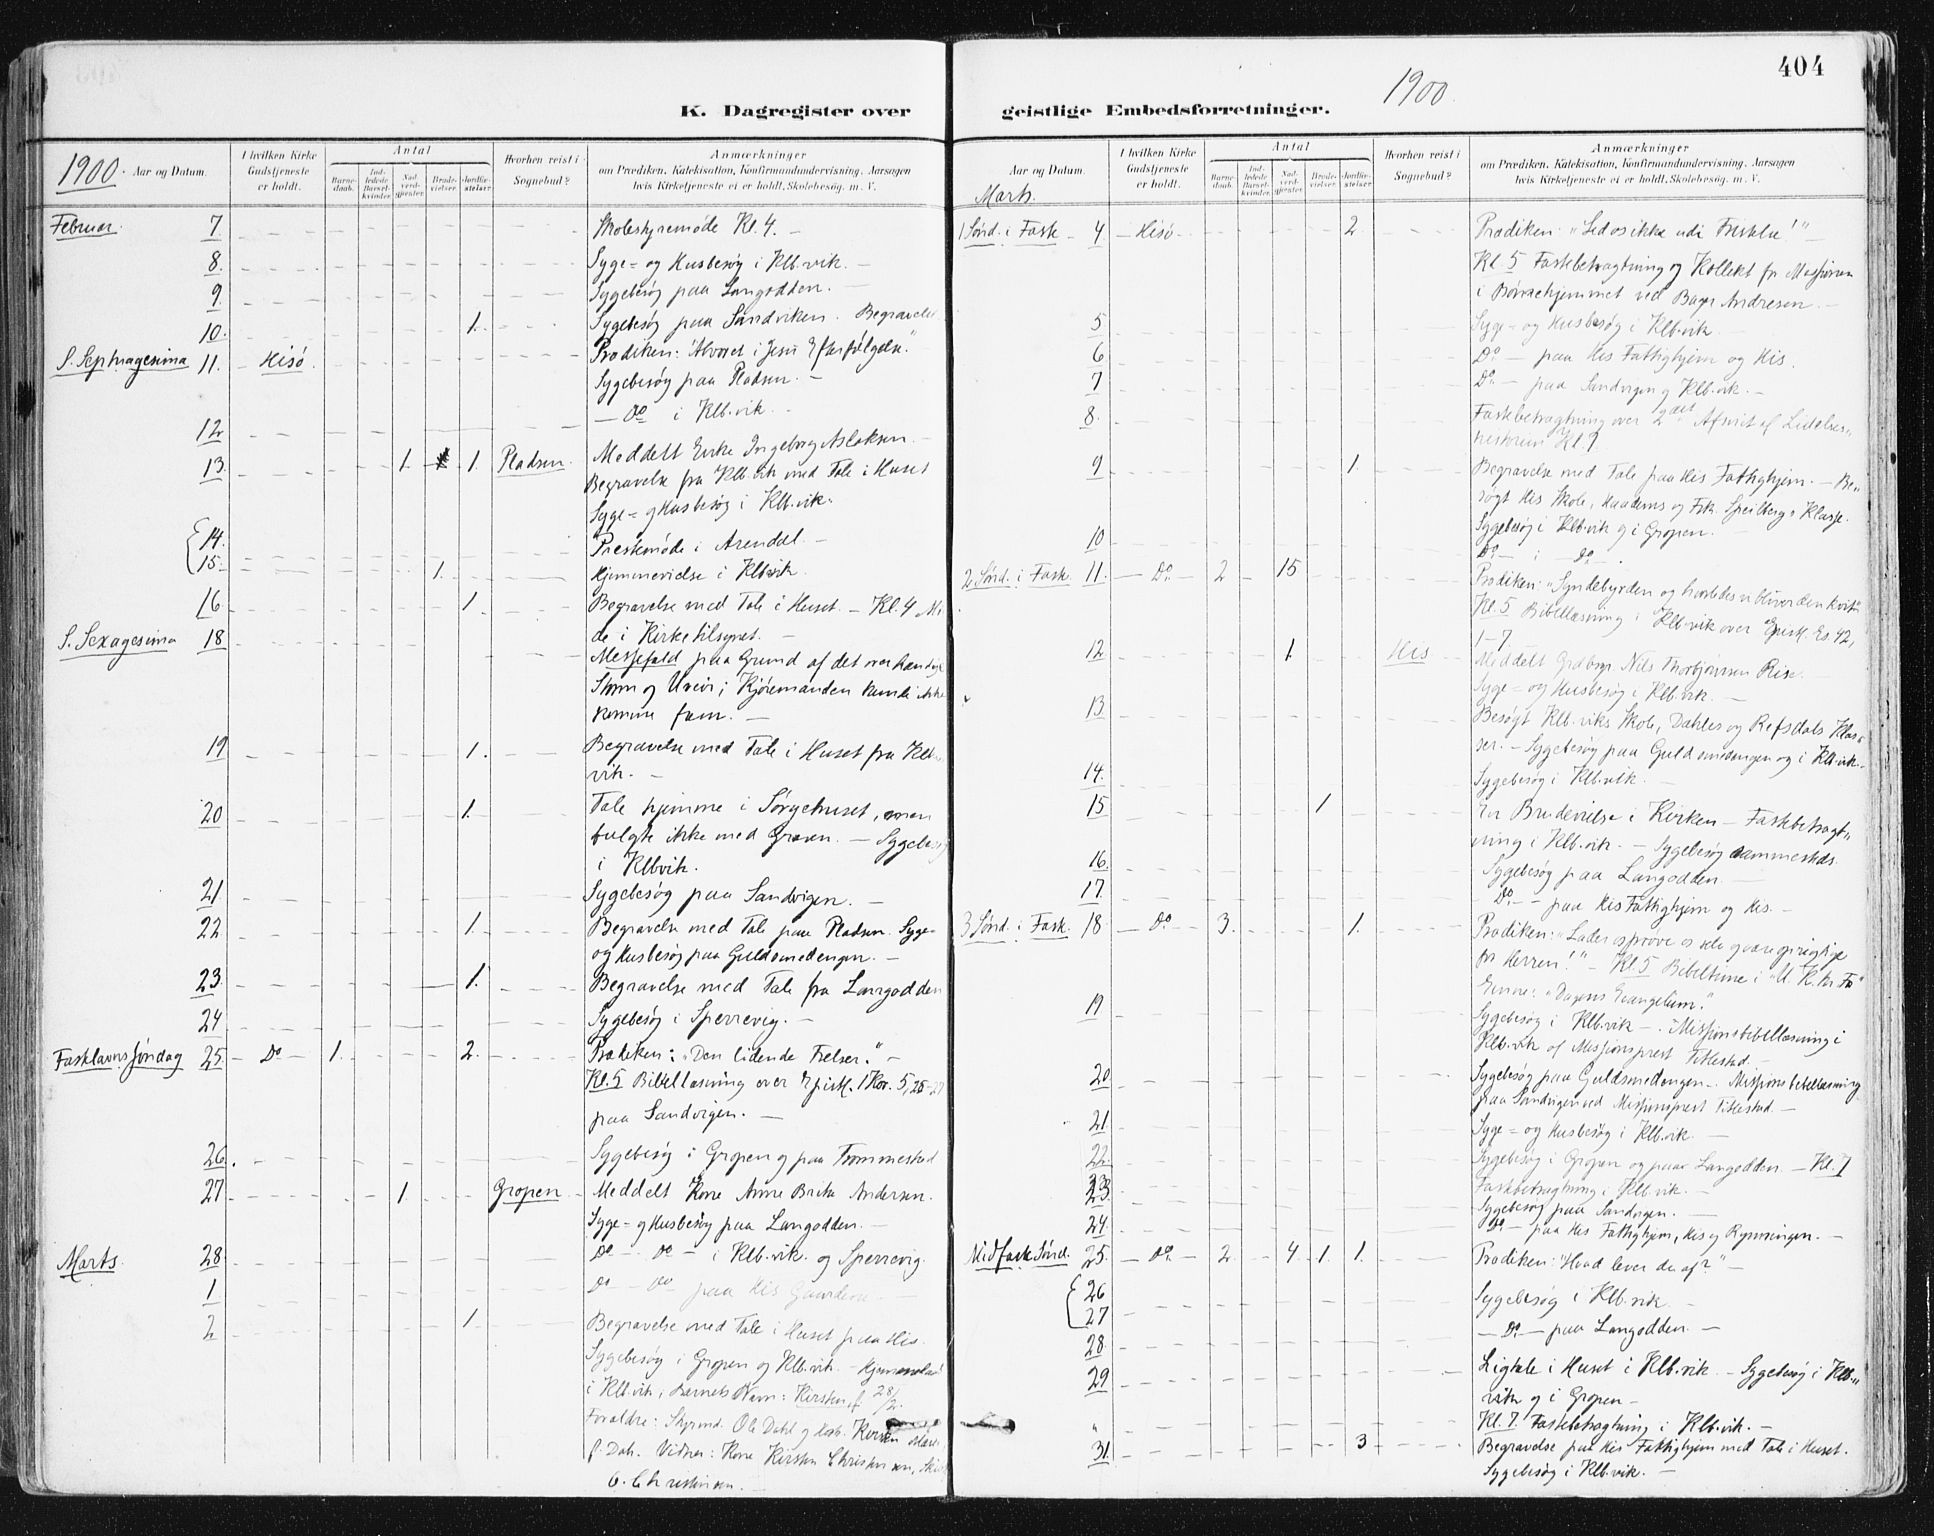 404
1900.
K. Dagregister over
geistlige Embedsforretninger.
1900.
Aar og Datum.
I hvilken Kirke Gudstjeneste er holdt.
Antal
Barnedaab.
Indledede Barselkvinder.
Nadverdgjester.
Brudevielser.
Jordfæstelser.
Hvorhen reist i Sognebud?
Anmærkninger
om Prædiken, Katekisation, Konfirmandundervisning, Aarsagen
hvis Kirketjeneste ei er holdt, Skolebesøg. m. V.
Februar. 7 Skolestyremøde Kl. 4. —
8. Syge- og Husbesøg i Klb.vik. —
9 Sygebesøg paa Langodden. —
10. 1. Sygebesøg paa Sandviken. Begravelse
S. Septuagesima 11. Hisö. Prædiken: "Alvoret i Jesu Efterfølgelse."
Sygebesøg paa Pladsen. —
12 — Do i Klb.vik. —
13. 1. 1. Pladsen. Meddelt Enke Ingeborg Aslaksen. —
Begravelse fra Klb.vik med Tale i Huset
Syge- og Husbesøg i Klb.vik.
14. Prestemøde i Arendal. —
15. 1. Hjemmevielse i Klb.vik.
16 1. Begravelse med Tale i Huset. — Kl. 4 Mø-
de i Kirketilsynet. —
S. Sexagesima 18 Messefald paa Grund af det overhændige
Storm og Uveir; Kjøremanden kunde ikke
komme frem. —
19 1. Begravelse med Tale i Huset fra Klb.
vik. —
20 1. Tale hjemme i Sørgehuset, men
fulgte ikke med Graven. — Sygebesøg
i Klbvik.
21 Sygebesøg paa Sandvigen. —
22 1. Begravelse med Tale paa Pladsen. Syge-
og Husbesøg paa Guldsmedengen. —
23 1. Begravelse med Tale fra Langodden
24 Sygebesøg i Sperrevig. —
Fastelavns søndag 25 Do 1. 2. Prædiken: "Den lidende Frelser." —
Kl. 5 Bibellæsning over Epistl. 1 Kor. 5,
paa Sandvigen. —
26. Sygebesøg i Gropen og paa Trommestad
27 1. Gropen Meddelt Kone Anne Brita Andersen.
Syge- og Husbesøg paa Langodden. —
28 Do — Do — i Klb.vik. og Sperrevig.
Marts. 1 Do — Do paa His Gaardene —
2 1. Begravelse med Tale i Huset paa His.
Sygebesøg i Gropen og Klb.vik. —
i Klb.vik; Barnets Navn: Kirsten f. 28/2.
Forældre: Ole Dahl og
f. Dah. Vidner: Kone Kirsten Christensen,
O. Christensen. —
Aar og Datum.
I hvilken Kirke Gudstjeneste er holdt.
Antal
Barnedaab.
Indledede Barselkvinder.
Nadverdgjester.
Brudevielser.
Jordfæstelser.
Hvorhen reist i Sognebud?
Anmærkninger
om Prædiken, Katekisation, Konfirmandundervisning, Aarsagen
hvis Kirketjeneste ei er holdt, Skolebesøg. m. V.
Marts.
1 Sønd. i Fast. 4 Hisö 2. Prædiken: "Led os ikke udi Fristelse!" —
Kl. 5 Fastebetragtning og Kollekt for Missionen
i Børnehjemmet ved Andresen. —
5 Syge- og Husbesøg i Klb.vik. —
6 Do. — paa His Fattighjem og His.
7 Do. — paa Sandvigen og Klb.vik. —
8. Fastebetragtning over 2det Afsnit af Lidelses-
historien Kl. 7.
9 1. Begravelse med Tale paa His Fattighjem. — Be-
søgt His Skole, Kaadens og Frk. Speilbergs Klasse.
Sygebesøg i Klb.vik og i Gropen. —
10 Do — i — Do.
2 Sønd. i Fast. 11. Do 2 15 Prædiken: "Syndebyrden og hvorledes vi bliver den kvit"
Kl. 5 Bibellæsning i Klb.vik over Epistl. Es 42,
1-7
12 1. His Meddelt Grdbgr. Nils Thorbjørnsen Rise. —
Syge- og Husbesøg i Klb.vik. —
13. Besøgt Klb.viks Skole, Dahles og Refsdals Klas-
ser. — Sygebesøg paa Guldsmedengen og i Klb.vik.
14. Sygebesøg i Klb.vik. —
15 1 En Brudevielse i Kirken — Fastebetragt-
ning i Klb.vik. — Sygebesøg sammesteds.
16. Sygebesøg paa Langodden. —
17 Do. — paa His Fattighjem og His. —
3 Sønd. i Fast. 18 Do 3. 1. Prædiken:
for Herren!" — Kl. 5 Bibeltime i
Emne: "Dagens Evangelium."
19 Sygebesøg i Klb.vik —. Missionsbibellæsning i
Klb.vik af Missionsprest Titlestad. —
20 Sygebesøg paa Guldsmedengen —. Missionsbibellæsning
paa Sandvigen ved Missionsprest Titlestad. —
21. Syge- og Husbesøg i Klb.vik. —
22. Sygebesøg i Gropen og paa Langodden — Kl. 7
Fastebetragtning i Klb.vik. —
23 Sygebesøg paa Sandvigen. —
24. Do — paa His Fattighjem, His og Rynningen. —
Midfaste Sønd. 25. Do 2. 4. 1. 1. Prædiken: "Hvad lever du af?" —
26 Sygebesøg i Klb.vik —
27 — Do. — paa Langodden. —
28.
29 Ligtale i Huset i Klb.vik. — Sygebesøg i Klb.-
vik og i Gropen —
" Kl. 7. Fastebetragtning i Klb.vik. —
31. 3 Begravelse paa His Fattighjem med Tale i Huset.
Sygebesøg i Klb.vik. —